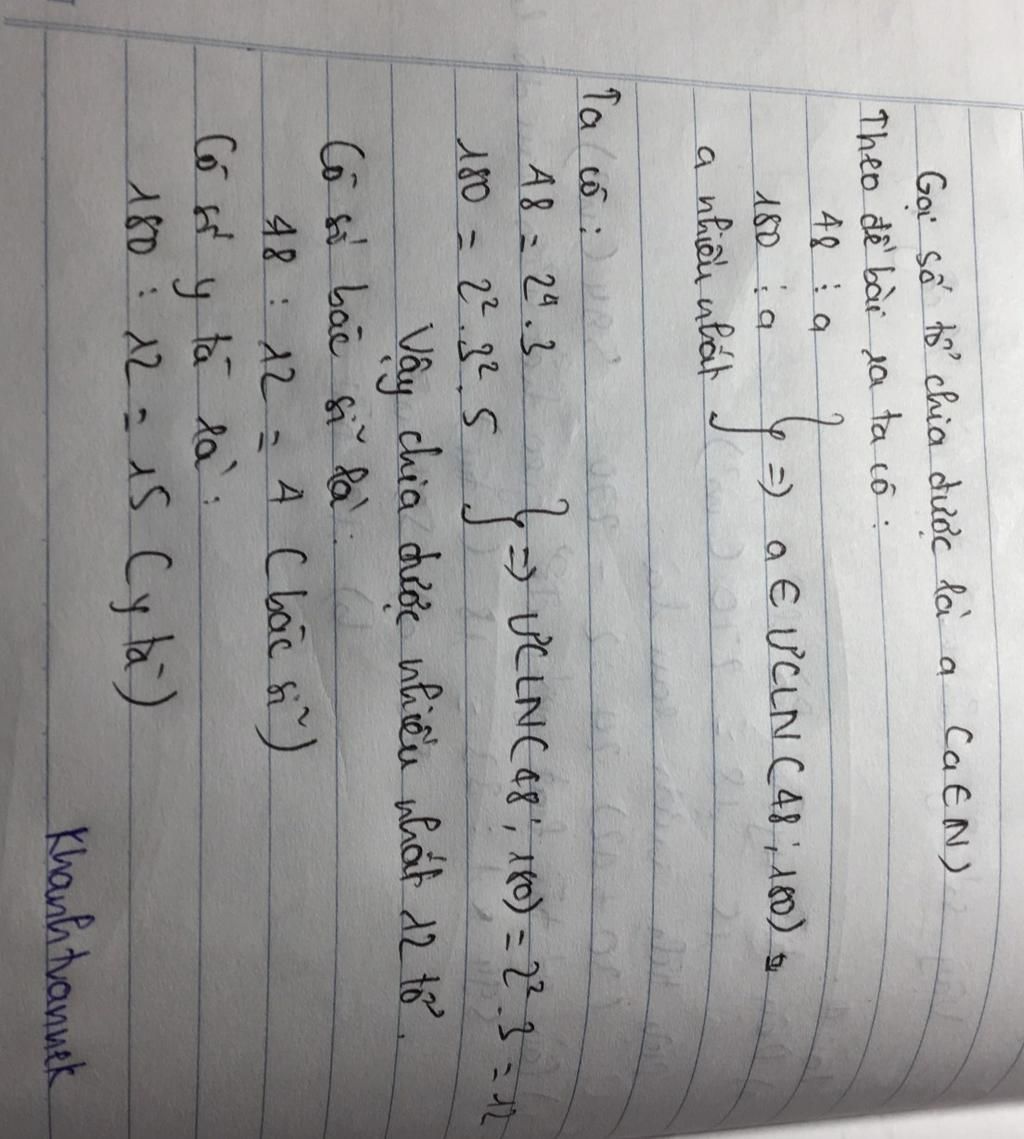 Gọi số tổ chia được là a (a∈N)
Theo đề bài ra ta có:
48 ⋮ a
180 ⋮ a } => a ∈ ƯCLN(48; 180)
a nhiều nhất
Ta có:
48 = 2⁴.3
180 = 2².3².5 } => ƯCLN(48; 180) = 2².3 = 12
Vậy chia được nhiều nhất 12 tổ.
Có số bác sĩ là:
48 : 12 = 4 (bác sĩ)
Có số y tá là:
180 : 12 = 15 (y tá)
Khanhtvannek